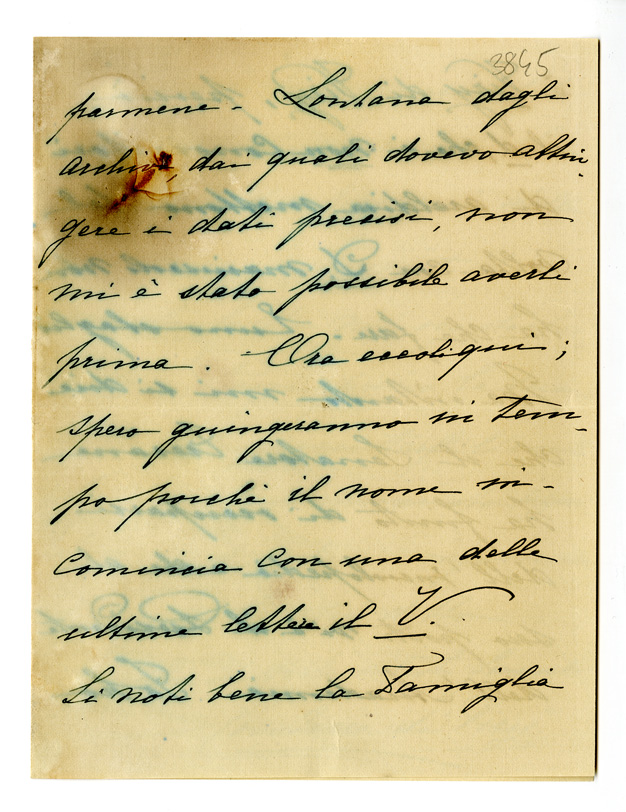 3845
parmene - Lontana dagli
archivi dai quali dovevo attin-
gere i dati precisi, non
mi è stato possibile averli
prima. Ora eccoli qui;
spero giungeranno in tem-
po poichè il nome in-
comincia con una delle
ultime lettere il V.
Si noti bene la Famiglia